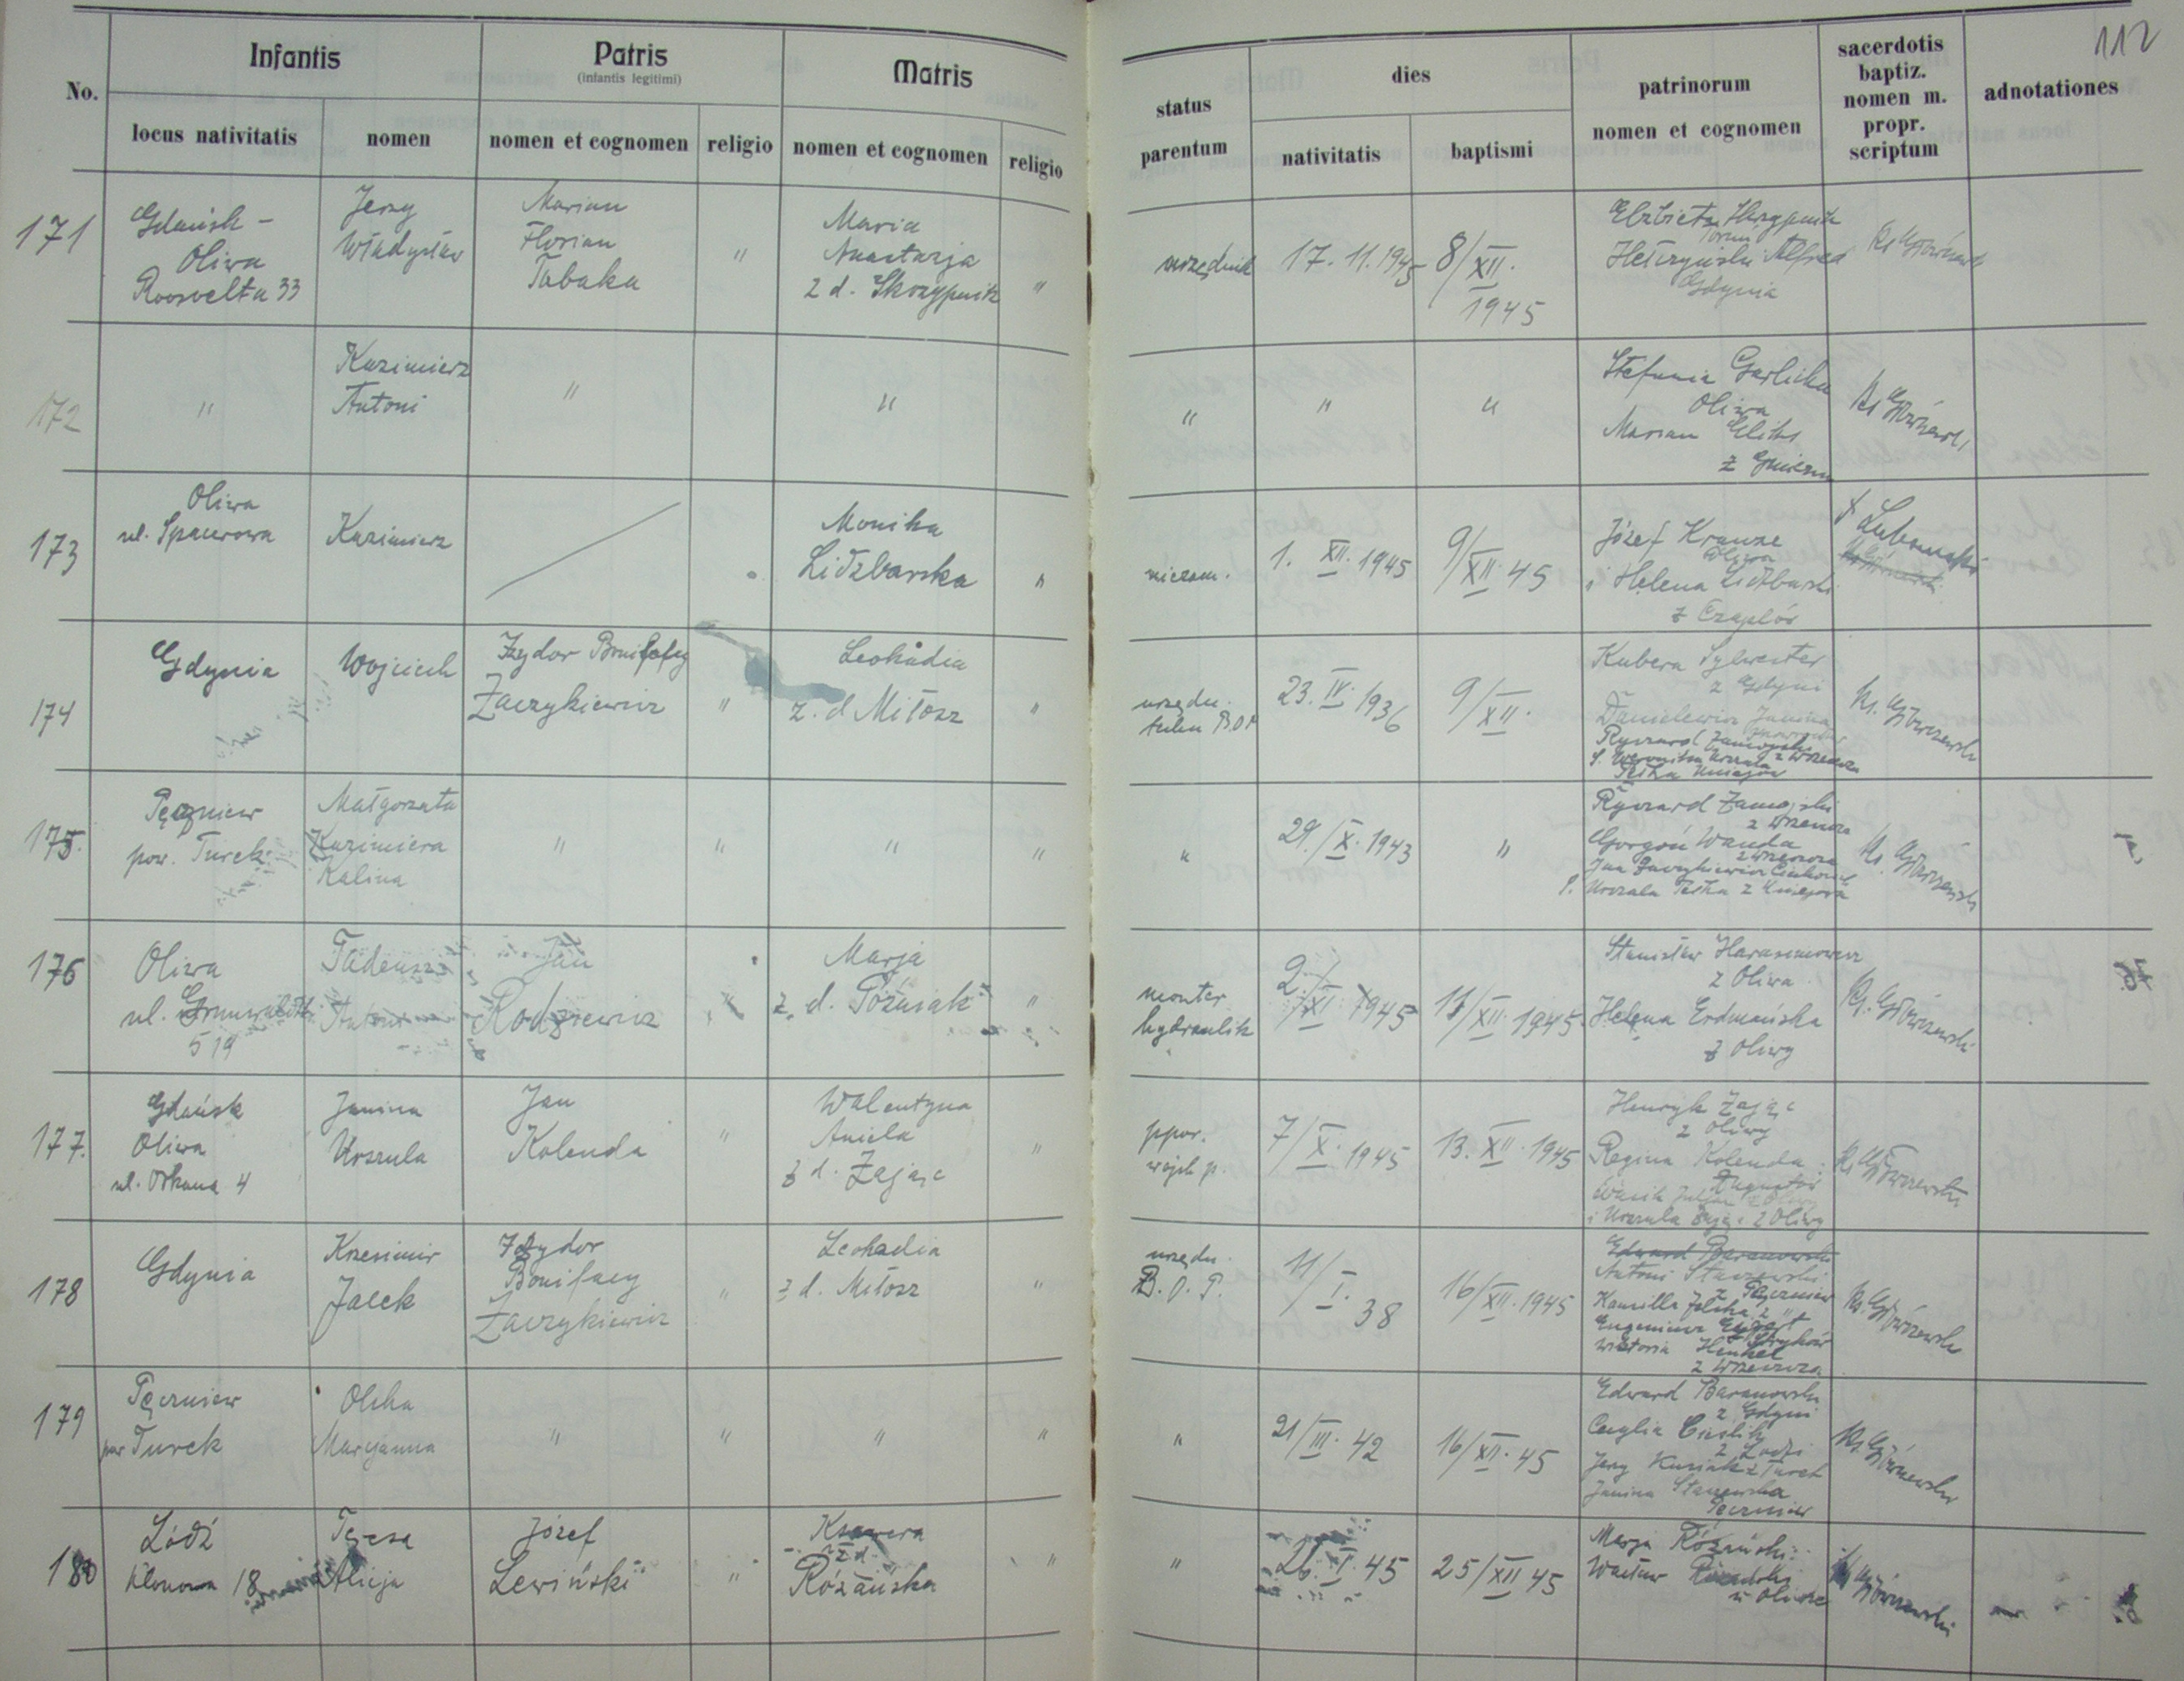 112
No.
Infantis
locus nativitatis
nomen
Patris
(infantis legitimi)
nomen et cognomen
religio
Matris
nomen et cognomen
religio
status
parentum
dies
nativitatis
baptismi
patrinorum
nomen et cognomen
sacerdotis
baptiz.
nomen m.
propr.
scriptum
adnotationes
171
Gdańsk -
Oliwa
Roosvelta 33
Jerzy
Władysław
Marian
Florian
Tabaka
"
Maria
Anastazja
z d. Skrzypnik
"
urzędnik
17. 11. 1945
8/XII.
1945
Elżbieta Skrzypnik
Toruń
Alfred
Gdynia
172
"
Kazimierz
Antoni
"
"
"
"
"
Stefania Garlicka
Oliwa
Marian
z Gniezna
173
Oliwa
ul. Spacerowa
Kazimierz
Monika
Lidzbarska
"
niezam.
1. XII. 1945
9/XII 45
Józef Krauze
Oliwa
i Helena Lidzbarski
z
174
Gdynia
Wojciech
Izydor Bonifacy
Zaczykiewicz
"
Leokadia
z. d Miłosz
"
urzędn.
B.O.P
23. IV. 1936
9/XII.
Kubera Sylwester
z Gdyni
Danielewicz Janina
Ryszard Zamojski z Wrzeszcza
175.
Pęczniew
pow. Turek
Małgorzata
Kazimiera
Kalina
"
"
"
"
"
29./X. 1943
"
Ryszard Zamojski
z Wrzeszcza
Gorgoń Wanda
z Wrzeszcza
Jan Zaczykiewicz
Urszula
176
Oliwa
ul. Grunwaldzka
519
Tadeusz
Antoni
Jan
Rodziewicz
"
Marja
z. d. Poźniak
"
monter
hydraulik
2./XI 1945
11/XII. 1945
Stanisław Harasimowicz
z Oliwa
Helena Erdmańska
z Oliwy
177.
Gdańsk
Oliwa
ul. Orkana 4
Janina
Urszula
Jan
Kolenda
"
Walentyna
Aniela
z d. Zając
"
ppor.
wojsk p.
7/X. 1945
13. XII. 1945
Henryk Zając
z Oliwy
Regina Kolenda
i Urszula Zając z Oliwy
178
Gdynia
Krzesimir
Jacek
Izydor
Bonifacy
Zaczykiewicz
"
Leokadia
z d. Miłosz
"
urzędn.
B. O. P.
11/I. 38
16/XII. 1945
Edward Baranowski
Antoni Staszewski
z Pęczniew
Kamilla z "
Eugeniusz
Wiktoria Henkel
z Wrzeszcza
179
Pęczniew
pow Turek
Olcha
Marjanna
"
"
"
"
"
21/III. 42
16/XII. 45
Edward Baranowski
z Gdyni
Cieślik
z Łodzi
Jerzy Kusiak z Turek
Janina Staszewska
Pęczniew
180
Łódź
Klonowa 18
Teresa
Alicja
Józef
Lewiński
"
Ksawera
z d.
Różańska
"
"
26. I. 45
25/XII 45
Marja Różański
Wacław Różański
w Oliwie